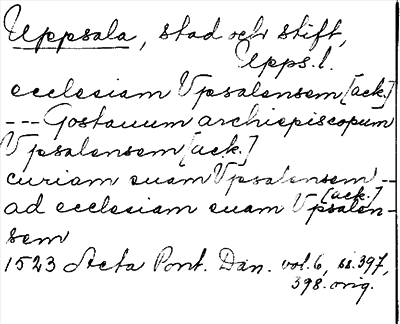 Uppsala, stad och stift,
Upps. l.
ecclesiam Vpsalensem [ack.]
--- Gostauum archiepiscopum
Vpsalensem [ack.]
curiam suam Vpsalensem --
ad ecclesiam suam Vpsalen- [ack.]
sem
1523 Acta Pont. Dan. vol. 6, ss. 397,
398. orig.